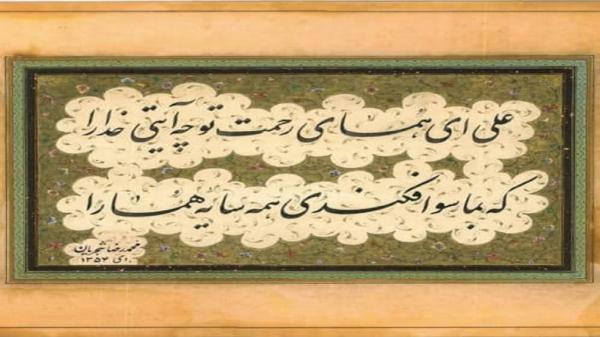 علی ای همای رحمت تو چه آیتی خدا را
که بماسوا فکندی همه سایه هما را
محمدرضا شجریان
دی ۱۳۵۴